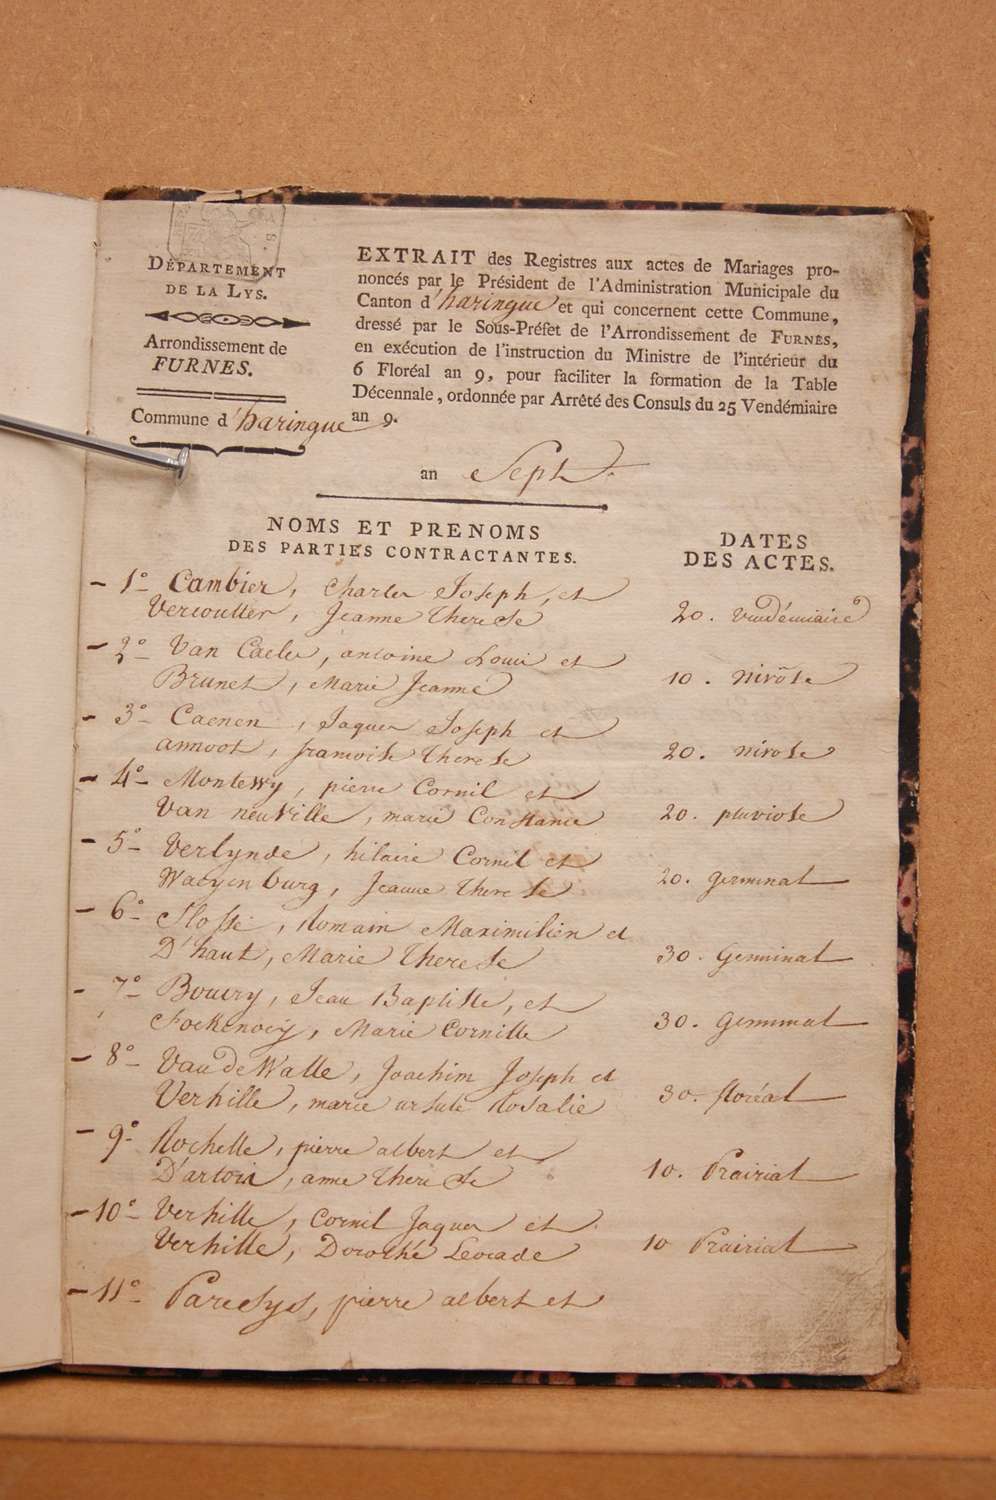 DÉPARTEMENT
DE LA LYS.
Arrondissement de
FURNES.
Commune d'haringue
EXTRAIT des Registres aux actes de Mariages pro-
noncés par le Président de l'Administration Municipale du
Canton d'haringue et qui concernent cette Commune,
dressé par le Sous-Préfet de l'Arrondissement de FURNES,
en exécution de l'instruction du Ministre de l'intérieur du
6 Floréal an 9, pour faciliter la formation de la Table
Décennale, ordonnée par Arrêté des Consuls du 25 Vendémiaire
an 9.
an Sept.
NOMS ET PRENOMS
DES PARTIES CONTRACTANTES.
DATES
DES ACTES.
- 1° Cambier, Charles Joseph, et
Vercoutter, Jeanne Therese 20. Vendémiaire
- 2° Van Caeler, antoine Louis et
Brunet, Marie Jeanne 10. nivôse
- 3° Caenen, Jaques Joseph et
annoot, francoise Therese 20. nivose
- 4° Montewy, pierre Cornil et
Van neuville, marie Constance 20. pluviose
- 5° Verlynde, hilaire Cornil et
Waeyenburg, Jeanne Therese 20. germinal
- 6° Flosse, Romain Maximilien et
D'haut, Marie Therese 30. Germinal
- 7° Boucry, Jean Baptiste, et
Fockenoey, Marie Cornille 30. Germinal
- 8° Van de Walle, Joachim Joseph et
Verhille, marie ursule Rosalie 30. floréal
- 9° Rochelle, pierre albert et
D'artois, anne Therese 10. Prairial
- 10° Verhille, Cornil Jaques et
Verhille, Dorothé Leocade 10 Prairial
- 11° Paresys, pierre albert et